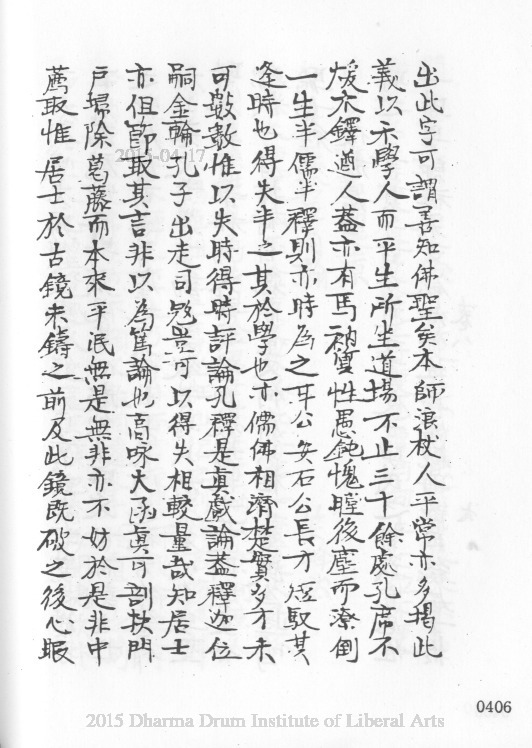 出此字可謂善知佛聖矣本師浪杖人平常亦多揭此
義以示學人而平生所坐道場不止三十餘處孔席不
煖木鐸遒人蓋亦有焉衲質性愚鈍愧瞠後塵而潦倒
一生半儒半釋則亦時為之耳公安石公長才短馭其
逢時也得失半之其於學也亦儒佛相濟楚寶多才未
可數數惟以失時得時評論孔釋是真戲論蓋釋迦位
嗣金輪孔子出走司寇豈可以得失相較量哉知居士
亦但節取其言非以為篤論也高咏大函真可剖抉門
戶掃除葛藤而本來平泯無是無非亦不妨於是非中
薦取惟居士於古鏡未鑄之前及此鏡既破之後心眼
0406
2015-04-17
2015 Dharma Drum Institute of Liberal Arts